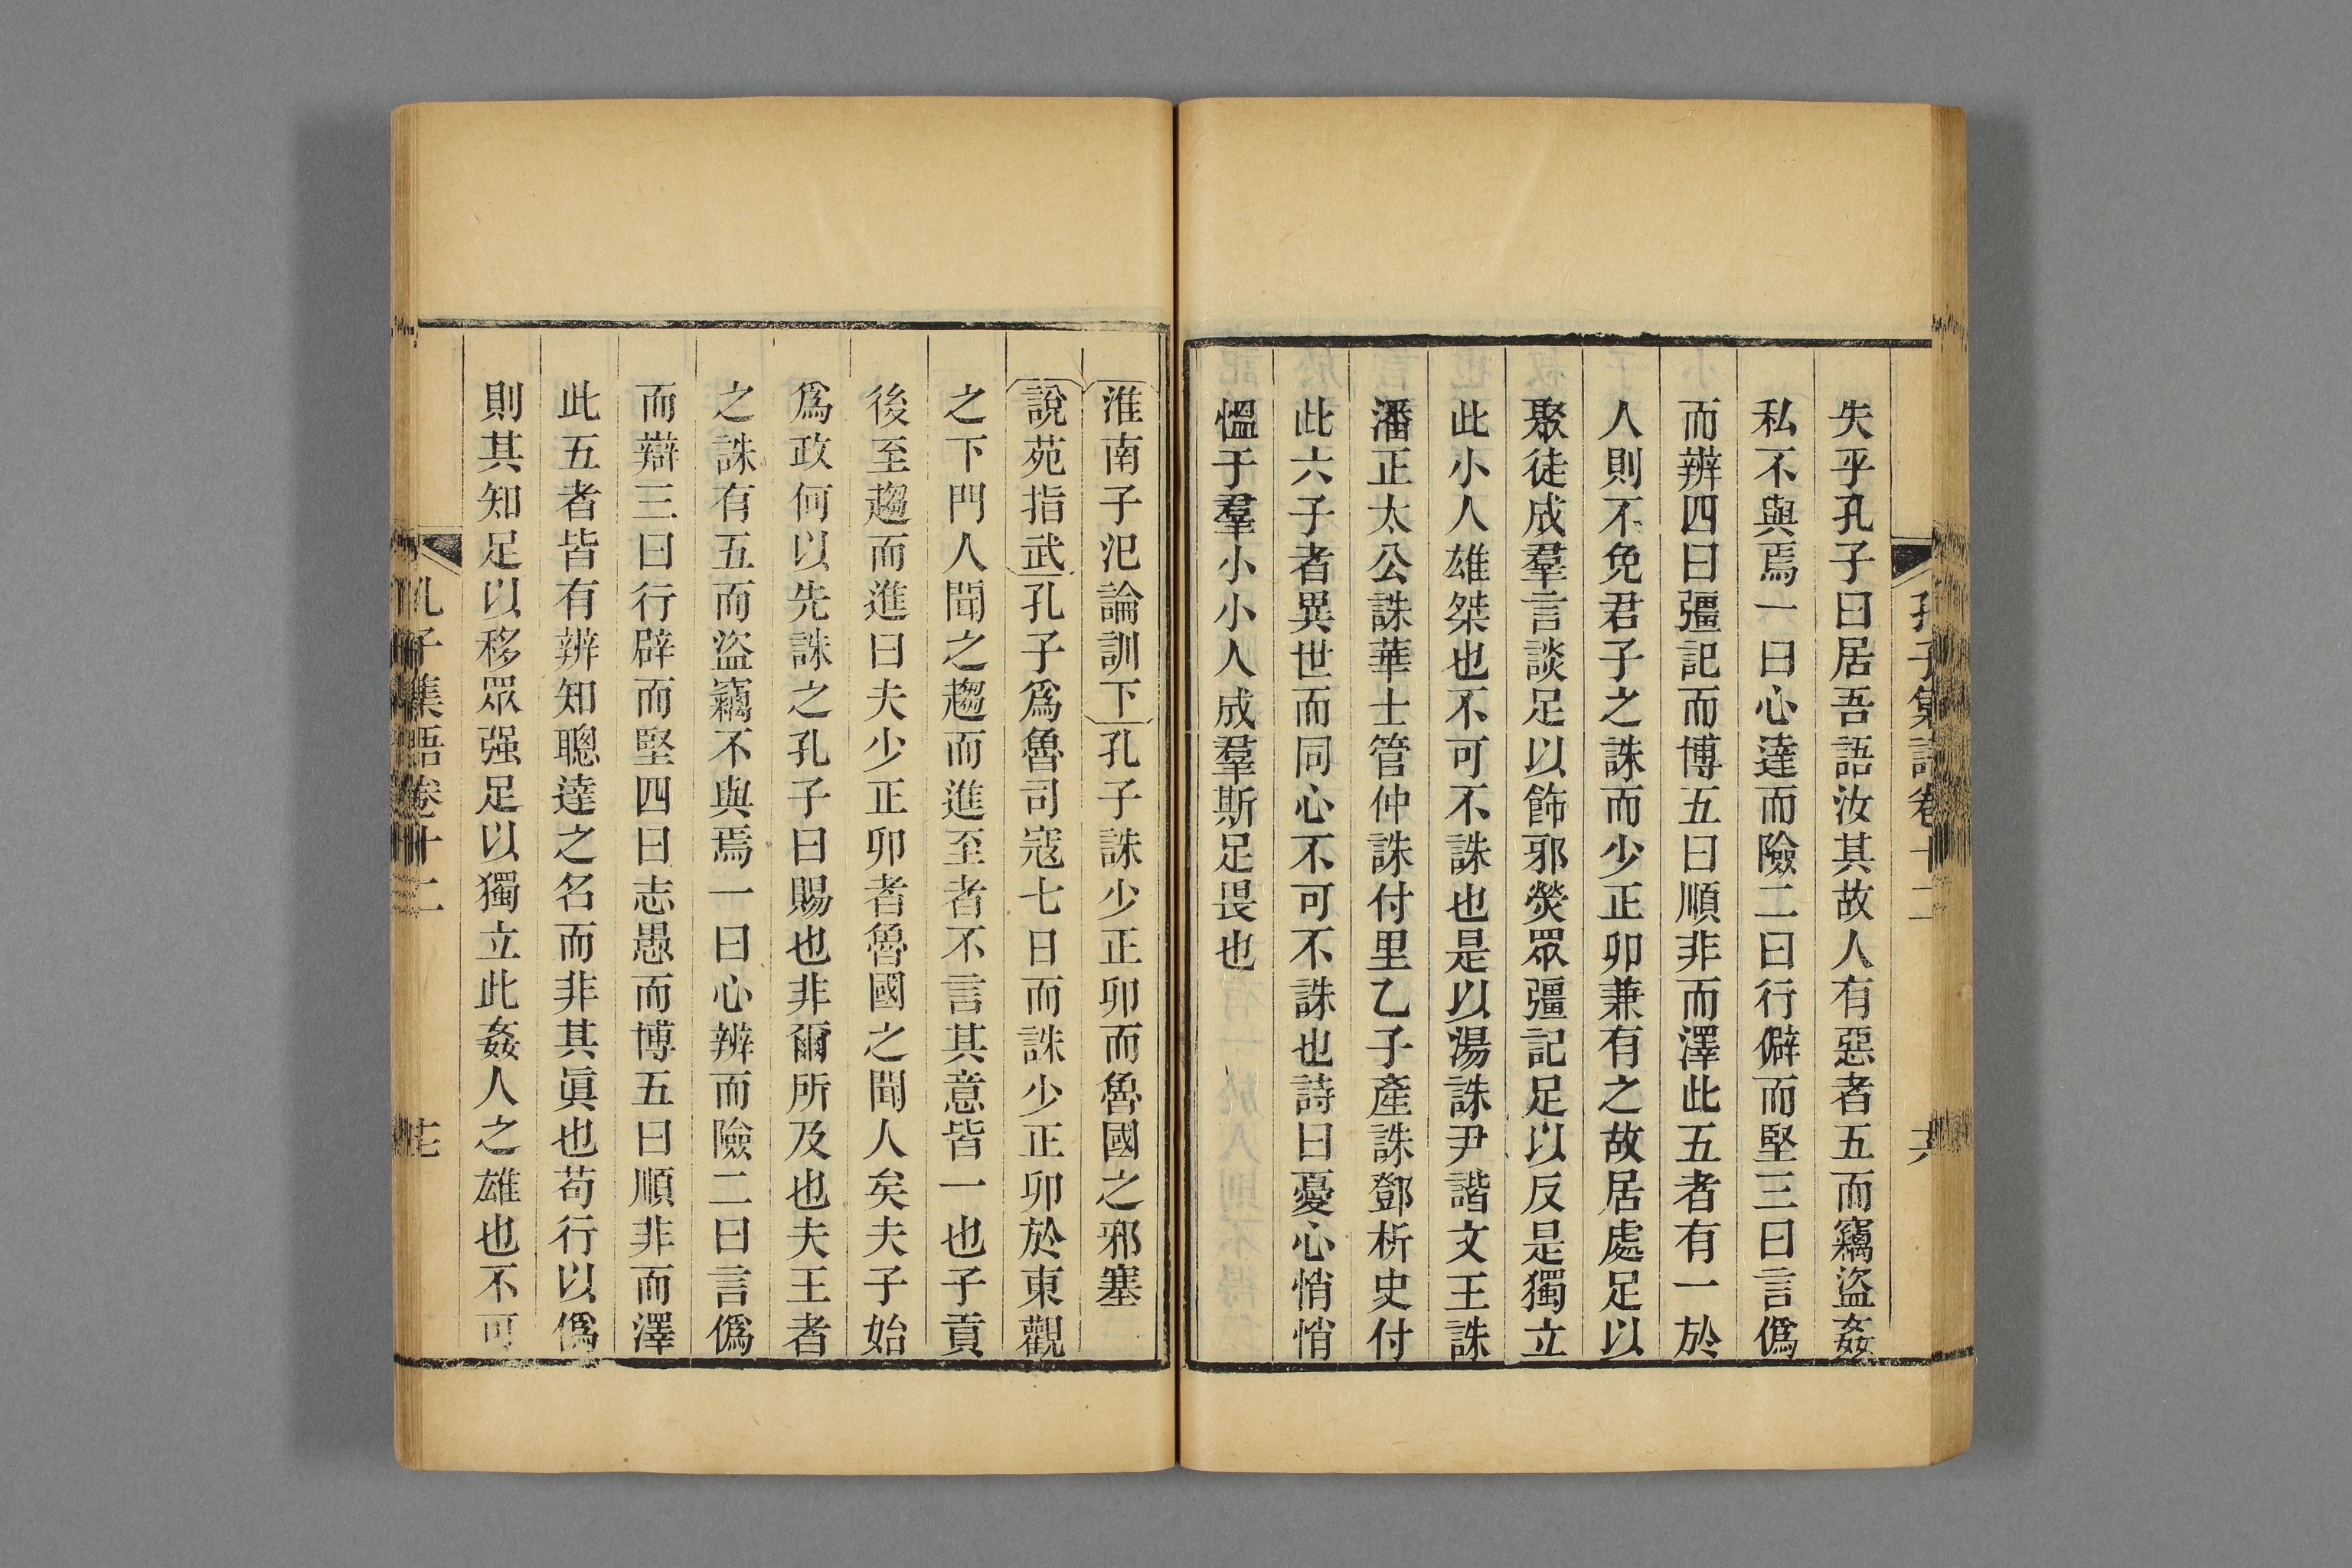 孔子集語卷十二
失乎孔子曰居吾語汝其故人有惡者五而竊盜姦
私不與焉一曰心達而險二曰行僻而堅三曰言僞
而辨四曰彊記而博五曰順非而澤此五者有一於
人則不免君子之誅而少正卯兼有之故居處足以
聚徒成羣言談足以飾邪熒眾彊記足以反是獨立
此小人雄桀也不可不誅也是以湯誅尹諧文王誅
潘正太公誅華士管仲誅付里乙子產誅鄧析史付
此六子者異世而同心不可不誅也詩曰憂心悄悄
慍于羣小小人成羣斯足畏也
淮南子氾論訓下孔子誅少正卯而魯國之邪塞
說苑指武孔子爲魯司寇七日而誅少正卯於東觀
之下門人聞之趨而進至者不言其意皆一也子貢
後至趨而進曰夫少正卯者魯國之聞人矣夫子始
爲政何以先誅之孔子曰賜也非爾所及也夫王者
之誅有五而盜竊不與焉一曰心辨而險二曰言僞
而辯三曰行辟而堅四曰志愚而博五曰順非而澤
此五者皆有辨知聰達之名而非其眞也苟行以僞
則其知足以移眾强足以獨立此姦人之雄也不可
孔子集語卷十二